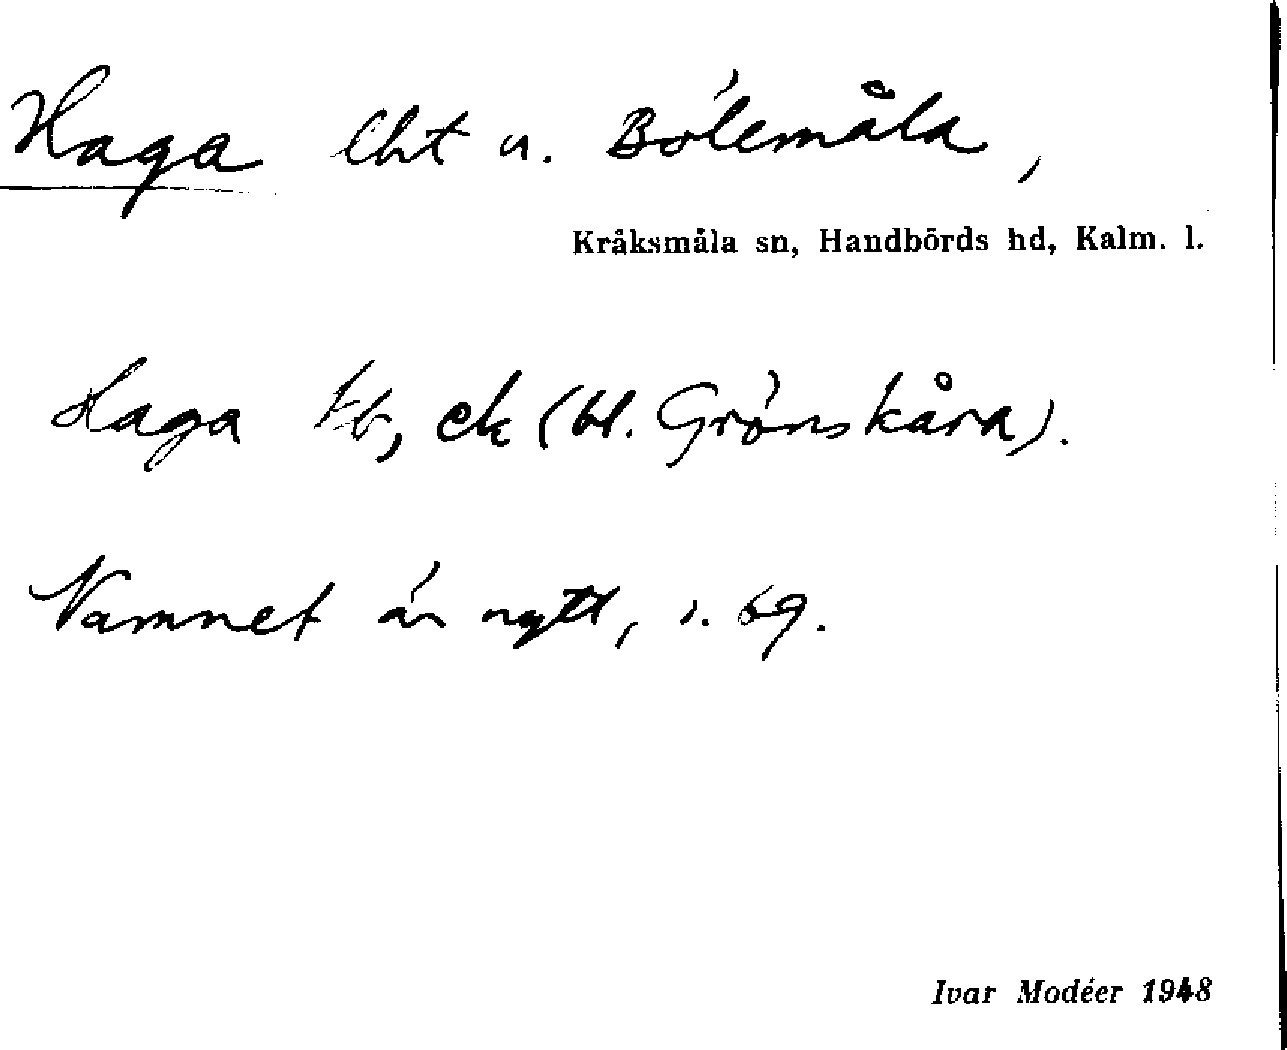 Haga lht u. Bölemåla,
Kråksmåla sn, Handbörds hd, Kalm. l.
Haga kb, ek (bl. Grönskåra).
Namnet är nytt, s. 69.
Ivar Modéer 1948